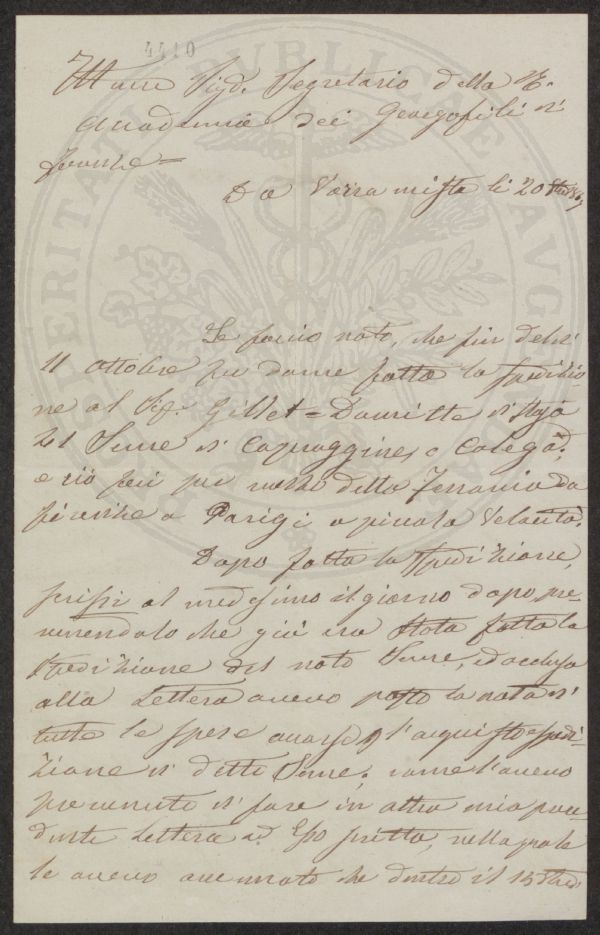 4410
Sig.e Segretario della R.
Accademia dei Georgofili di
Firenze =
Da Varramista li 20
Le faccio noto, che fin dal dì
11 ottobre fu da me fatta la spedizio
ne al Sig. Gillet = Dauritte di staja
41 Seme di Capraggine, o Galega,
e ciò feci per mezzo della Ferrovia da
Firenze a Parigi a piccola Velocità.
Dopo fatta la spedizione,
scrissi al medesimo il giorno dopo, pre
venendolo che già era stata fatta la
spedizione del noto Seme, ed acclusa
alla Lettera avevo posto la nota di
tutte le spese l'acquisto e spedi-
zione di detto Seme, come l'avevo
prevenuto di fare in altra mia prece
dente Lettera ad Esso scritta, nella quale
le avevo accennato che dentro il 15